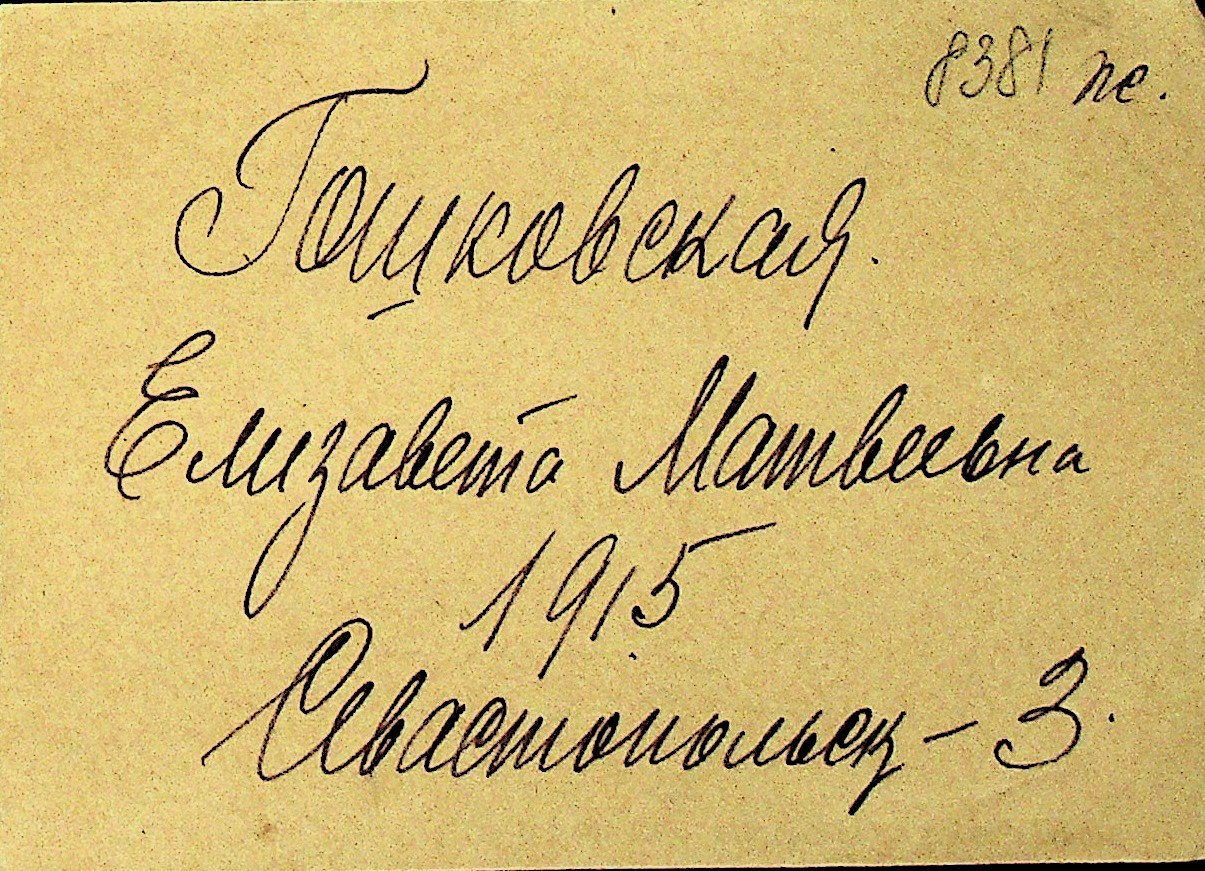 8381 пс.
Гошковская.
Елизавета Матвеевна
1915
Севастопольск - 3.